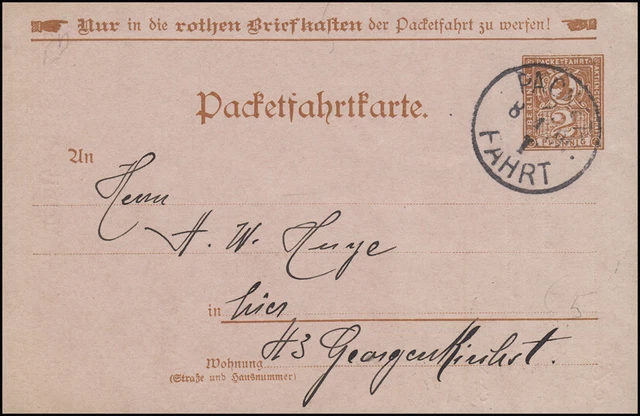 Nur in die rothen Briefkasten der Packetfahrt zu werfen!
Packetfahrtkarte.
PACKETFAHRT
BERLINER
2
PFENNIG
PACK
8 1
FAHRT
An
Herrn
A. W.
in hier
43 Georgenkirchst.
Wohnung
(Straße und Hausnummer)